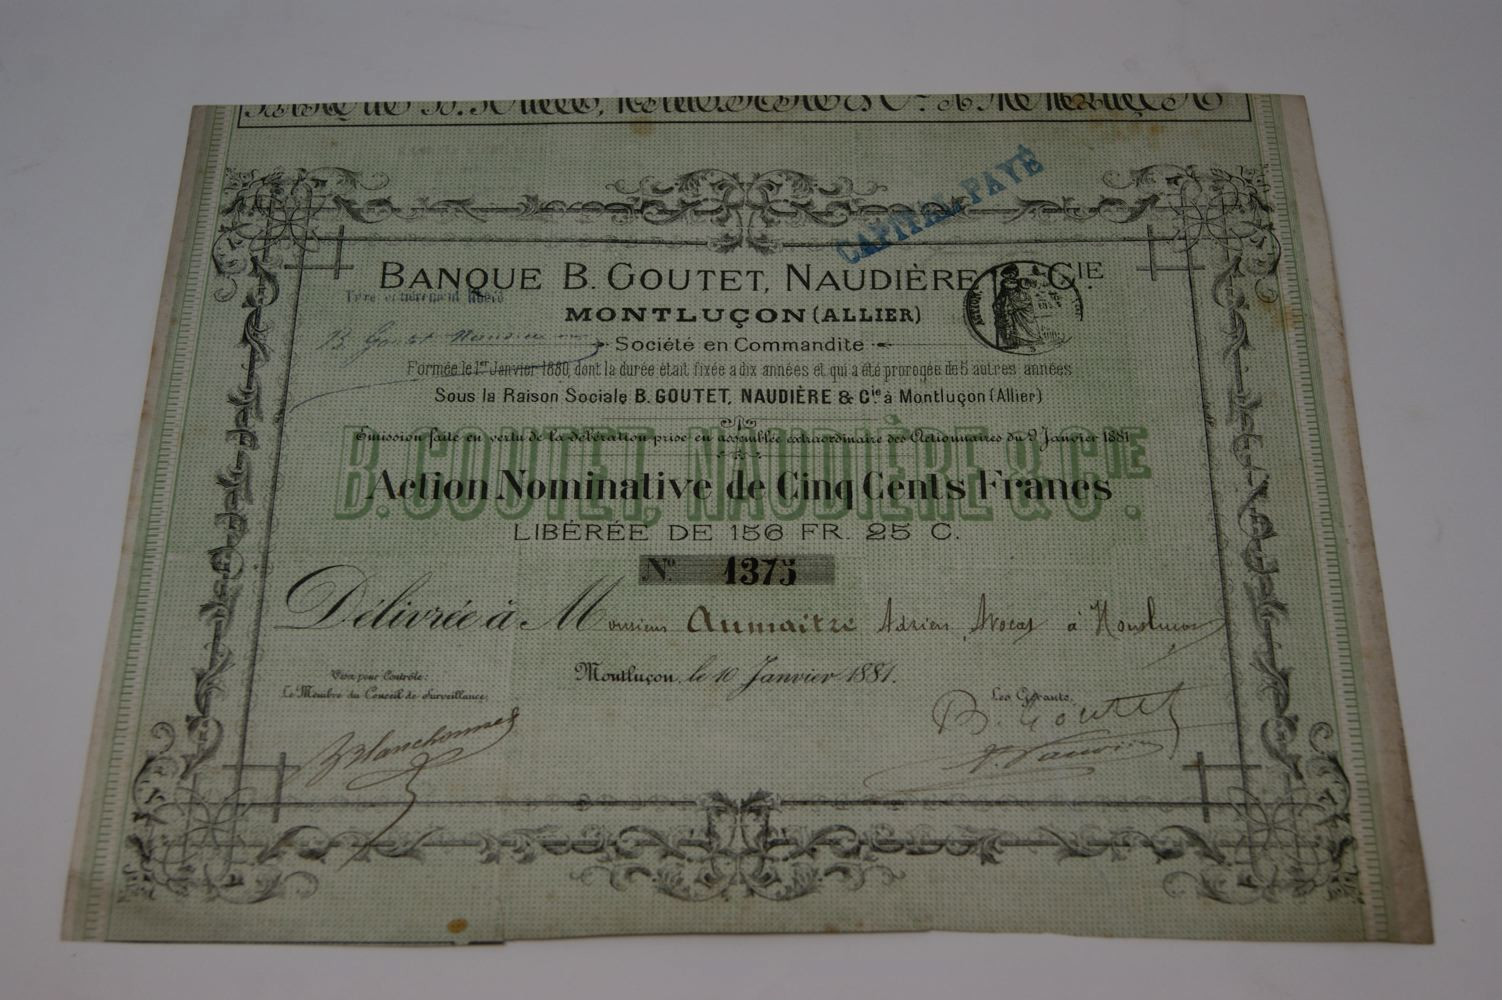 CAPITAL PAYÉ
BANQUE B. GOUTET, NAUDIÈRE & CIE
Titre entièrement libéré
MONTLUÇON (ALLIER)
Société en Commandite
B. Goutet Naudière
Formée le 1er Janvier 1880, dont la durée était fixée a dix années et qui a été prorogée de 5 autres années
Sous la Raison Sociale B. GOUTET, NAUDIÈRE & Cie. à Montluçon (Allier)
Emission faite en vertu de la délibération prise en assemblée extraordinaire des Actionnaires du 9 Janvier 1881
B. GOUTET, NAUDIÈRE & CIE.
Action Nominative de Cinq Cents Francs
LIBÉRÉE DE 156 FR. 25 C.
No. 1375
Délivrée à Monsieur Aumaitre Adrien, Avocat à Montluçon
Montluçon, le 10 Janvier 1881.
Visa pour Contrôle:
Le Membre du Conseil de Surveillance,
Les Gérants,
B. Goutet